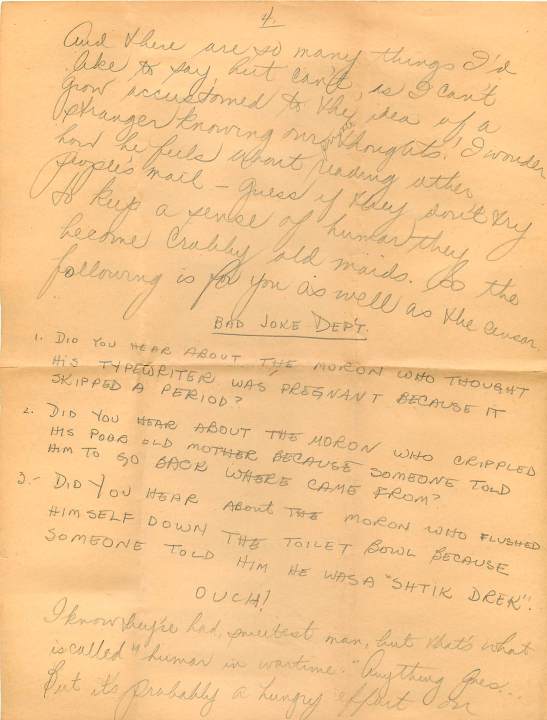 4.
And there are so many things I'd
like to say, but can't, as I can't
grow accustomed to the idea of a
stranger knowing our private thoughts! I wonder
how he feels about reading other
people's mail — Guess if they don't try
to keep a sense of humar they
become Crabby old maids. So the
following is for you as well as the censor
BAD JOKE DEP'T.
1. DID YOU HEAR ABOUT THE MORON WHO THOUGHT
HIS TYPEWRITER WAS PREGNANT BECAUSE IT
SKIPPED A PERIOD?
2. DID YOU HEAR ABOUT THE MORON WHO CRIPPLED
HIS POOR OLD MOTHER BECAUSE SOMEONE TOLD
HIM TO GO BACK WHERE CAME FROM?
3.- DID YOU HEAR ABOUT THE MORON WHO FLUSHED
HIMSELF DOWN THE TOILET BOWL BECAUSE
SOMEONE TOLD HIM HE WAS A "SHTIK DREK".
OUCH!
I know they're bad, sweetest man, but that's what
is called "humar in wartime." Anything goes...
But it's probably a hungry effort on